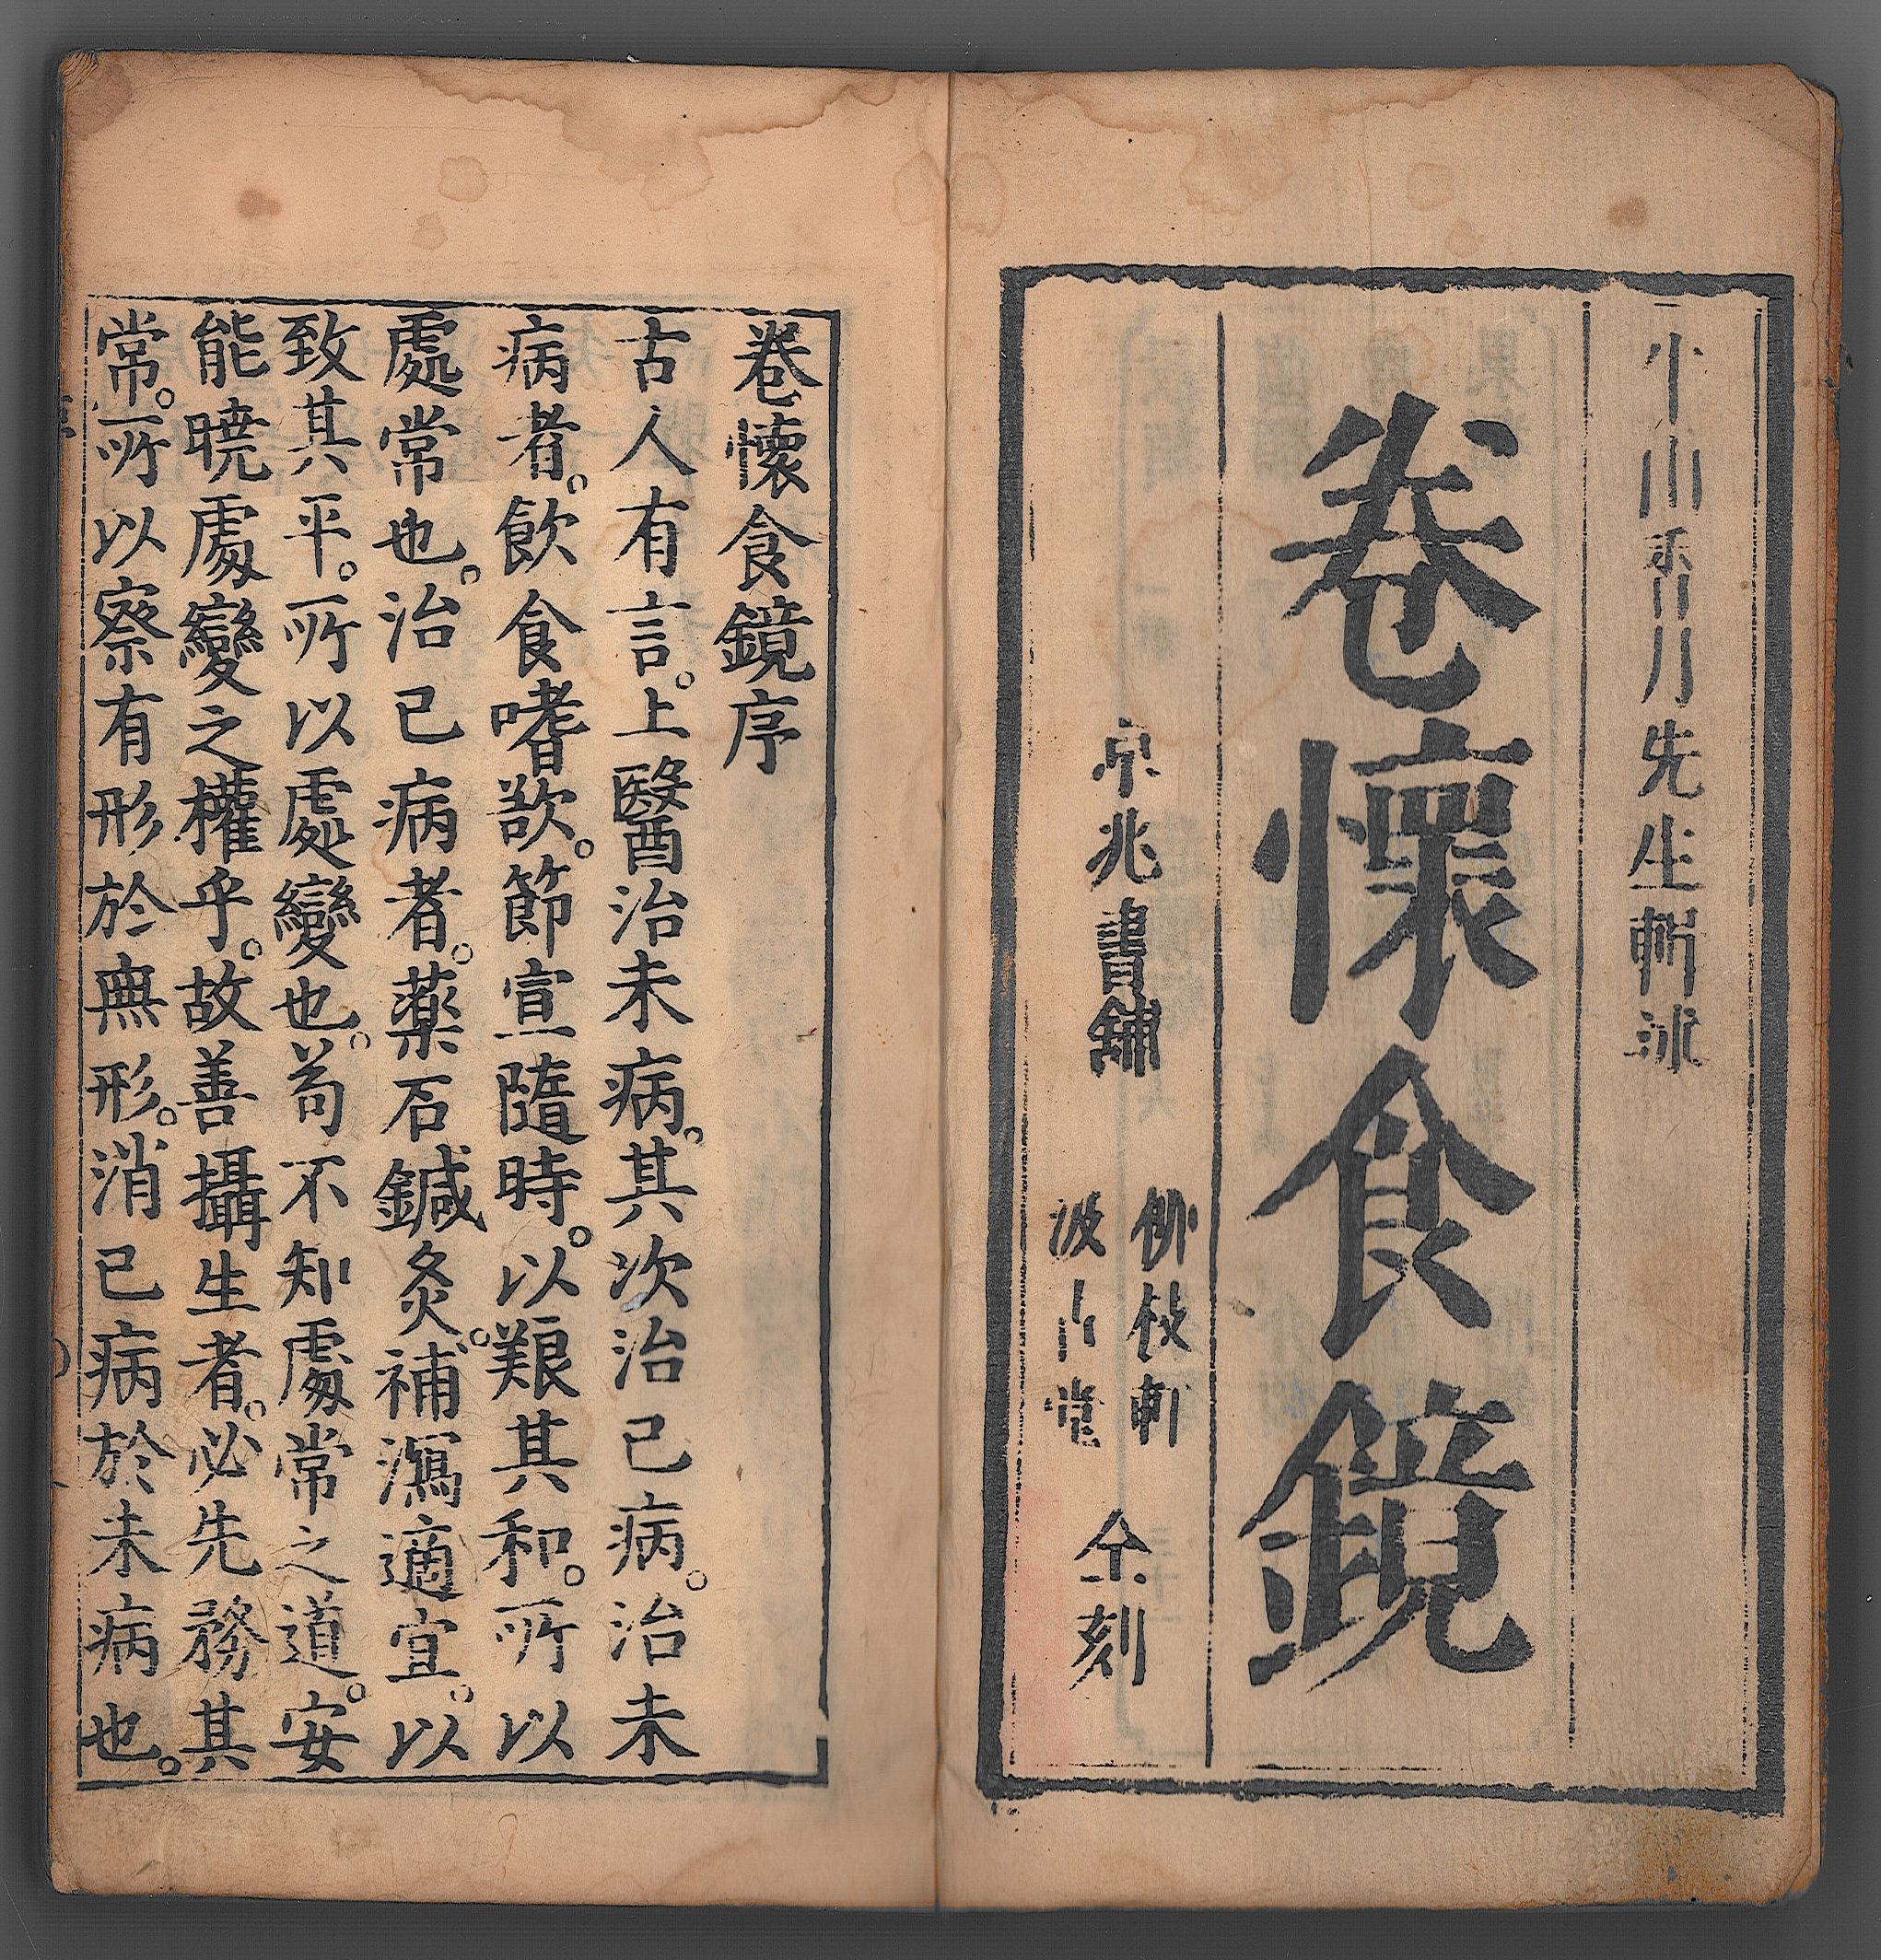 牛山香月先生輯述
卷懷食鏡
京兆書鋪
柳枝軒
汲古堂
仝刻
卷懷食鏡序
古人有言。上醫治未病。其次治已病。治未
病者。飲食嗜欲。節宣隨時。以艱其和。所以
處常也。治已病者。薬石鍼灸。補瀉適宜。以
致其平。所以處變也。苟不知處常之道。安
能曉處變之權乎。故善攝生者。必先務其
常。所以察有形於無形。消已病於未病也。